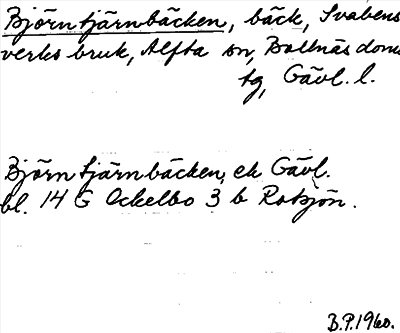 Björntjärnbäcken, bäck, Svabens
verks bruk, Alfta sn, Bollnäs doms
tg, Gävl. l.
Björntjärnbäcken, ek Gävl.
bl. 14 G Ockelbo 3 b Rotsjön.
B.P. 1960.